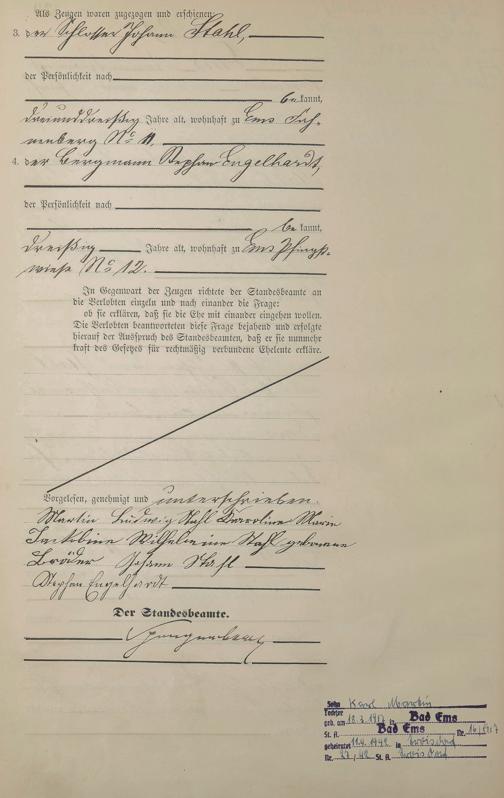 Als Zeugen waren zugezogen und erschienen
3. der Schlosser Johann Stahl,
der Persönlichkeit nach
be kannt,
dreiunddreißig Jahre alt, wohnhaft zu Ems
No 11.
4. der Bergmann Stephan Engelhardt,
der Persönlichkeit nach
be kannt,
dreißig Jahre alt, wohnhaft zu Ems Pfingst-
wiese No 12.
In Gegenwart der Zeugen richtete der Standesbeamte an
die Verlobten einzeln und nach einander die Frage:
ob sie erklären, daß sie die Ehe mit einander eingehen wollen.
Die Verlobten beantworteten diese Frage bejahend und erfolgte
hierauf der Ausspruch des Standesbeamten, daß er sie nunmehr
kraft des Gesetzes für rechtmäßig verbundene Eheleute erkläre.
Vorgelesen, genehmigt und unterschrieben.
Martin Ludwig Stahl Karroline Marie
Wilhelmine Stahl geborene
Bröder Johann Stahl
Stephan Engelhardt
Der Standesbeamte.
Sohn Karl Martin
Tochter
geb. am 18.3.1917 in Bad Ems
St. A. Bad Ems Nr. 16/1917
geheiratet 11.4.1942 in
Nr. 27/42 St. A.